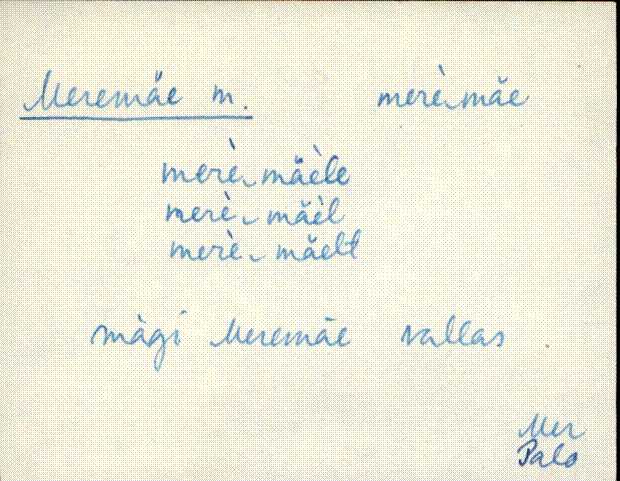 Meremäe m. merè‿mäe
merè‿mäèle
merè‿mäèl
merè‿mäelt
mägi Meremäe vallas.
Mer
Palo